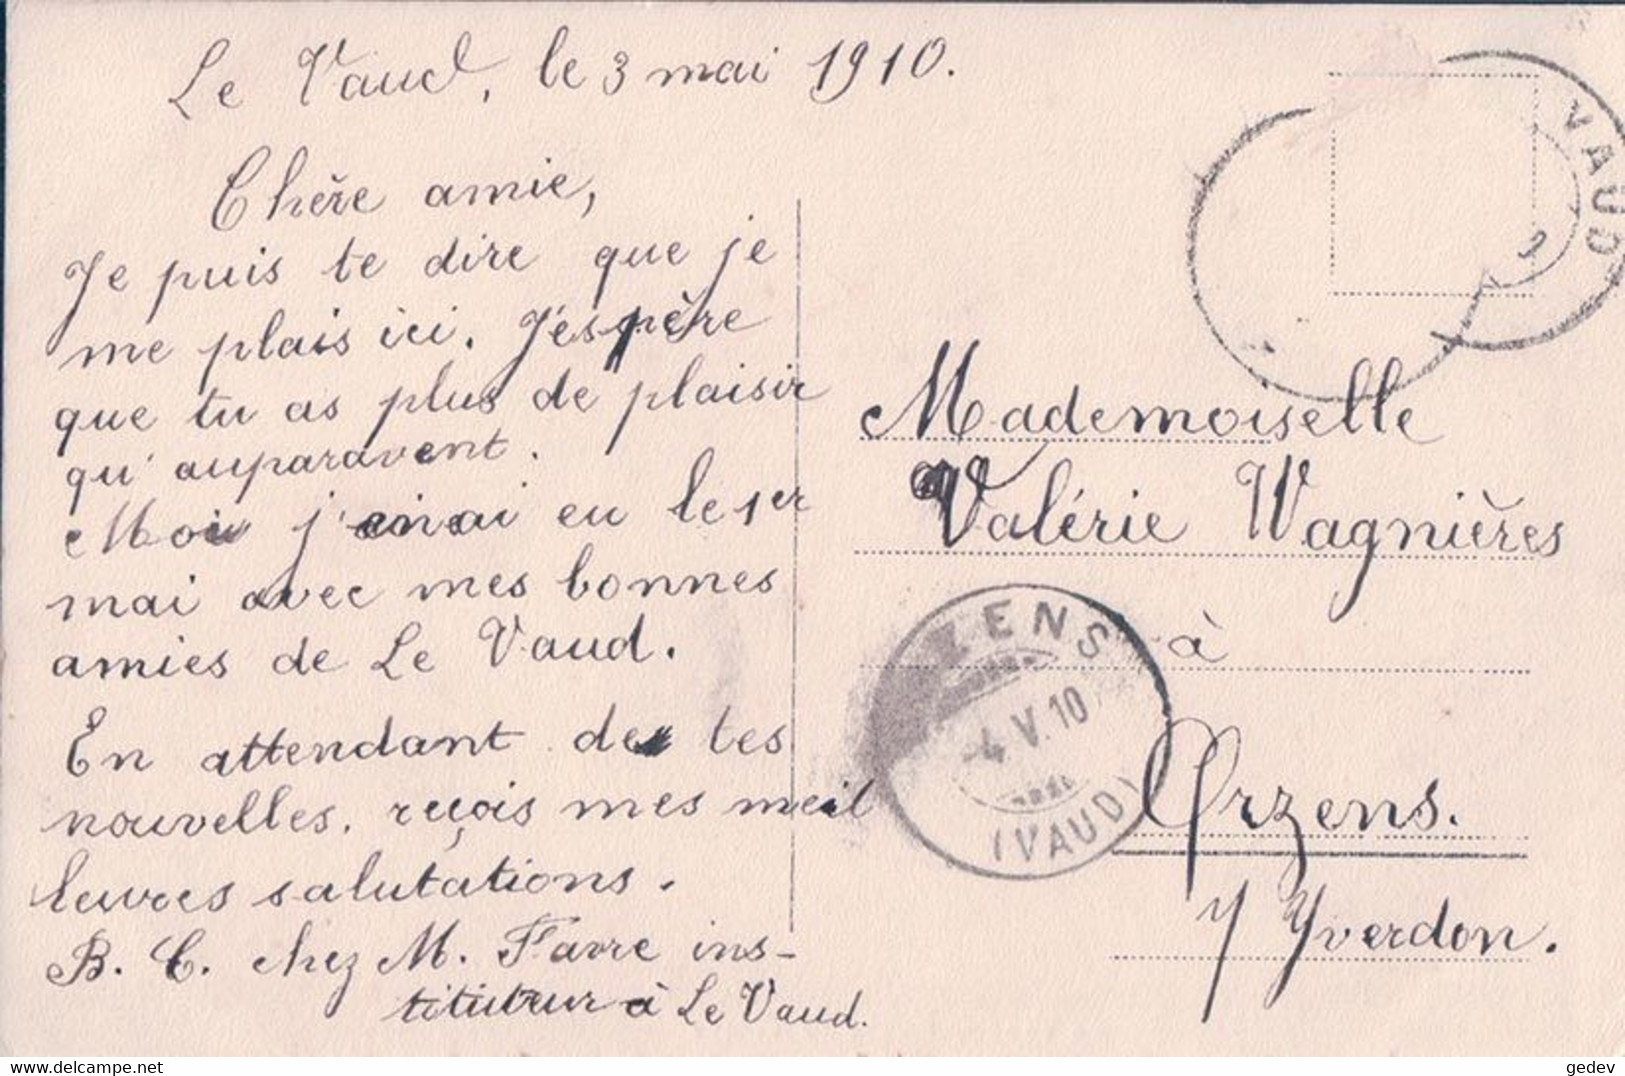 Le Vaud, le 3 mai 1910.
Chère amie,
Je puis te dire que je
me plais ici. J'éspère
que tu as plus de plaisir
qu'auparavent.
Moi j'en ai eu le 1er
mai avec mes bonnes
amies de Le Vaud.
En attendant de tes
nouvelles, reçois mes meil
leures salutations.
B. C. chez M. Favre ins-
tituteur à Le Vaud.
VAUD
Mademoiselle
Valérie Wagnières
à
Orzens.
s/ Yverdon.
ZENS
4.V.10
(VAUD)
https://www.delcampe.net
gedev